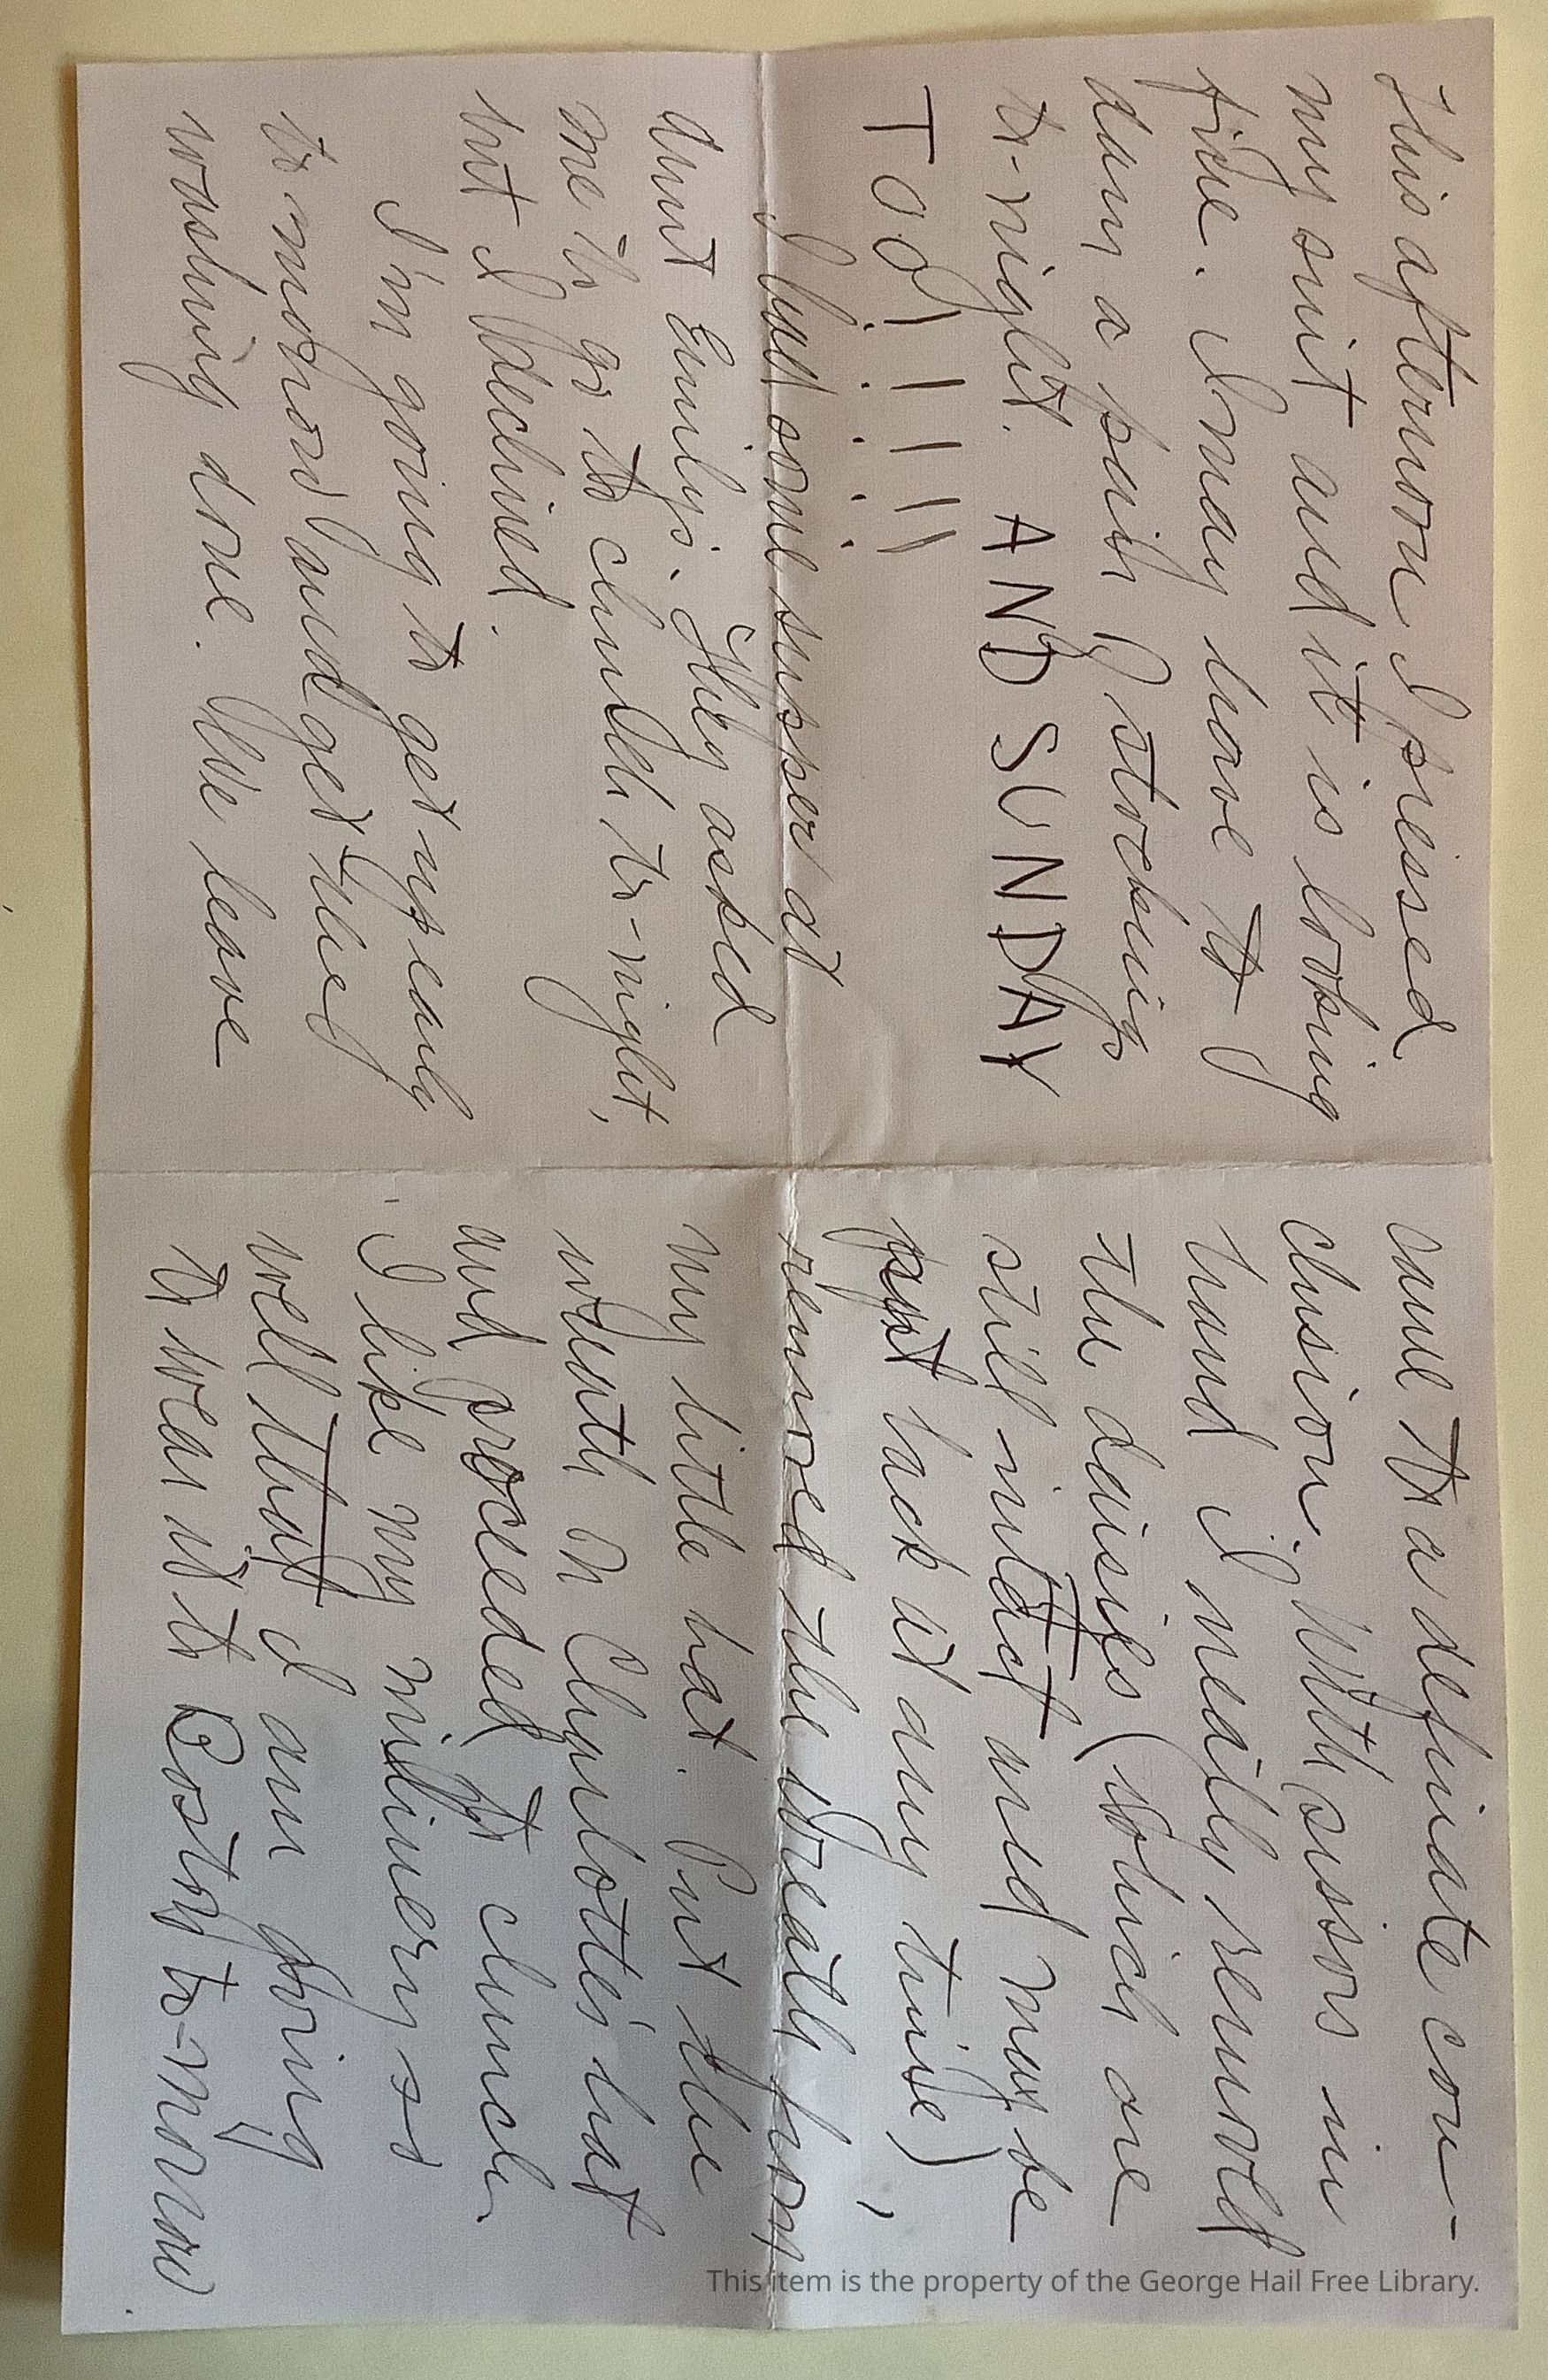 This afternoon I pressed
my suit and it is looking
fine. I may have to
darn a pair of stockings
to-night. AND SUNDAY
TOO!!!!!
I had some supper at
Aunt Emily's. They asked
me to go to church to-night,
but I declined.
I'm going to get up early
to-morrow and get the
washing done. We leave
came to a definate con-
clusion. With scissors in
hand I neatly removed
the daisies (which are
still intact and may be
put back at any time),
removed the wreath from
my little hat. Put the
wreath on Charlotte's hat
and proceeded to church.
I like my milinery so
well that I am going
to wear it to Boston to-morrow
This item is the property of the George Hail Free Library.